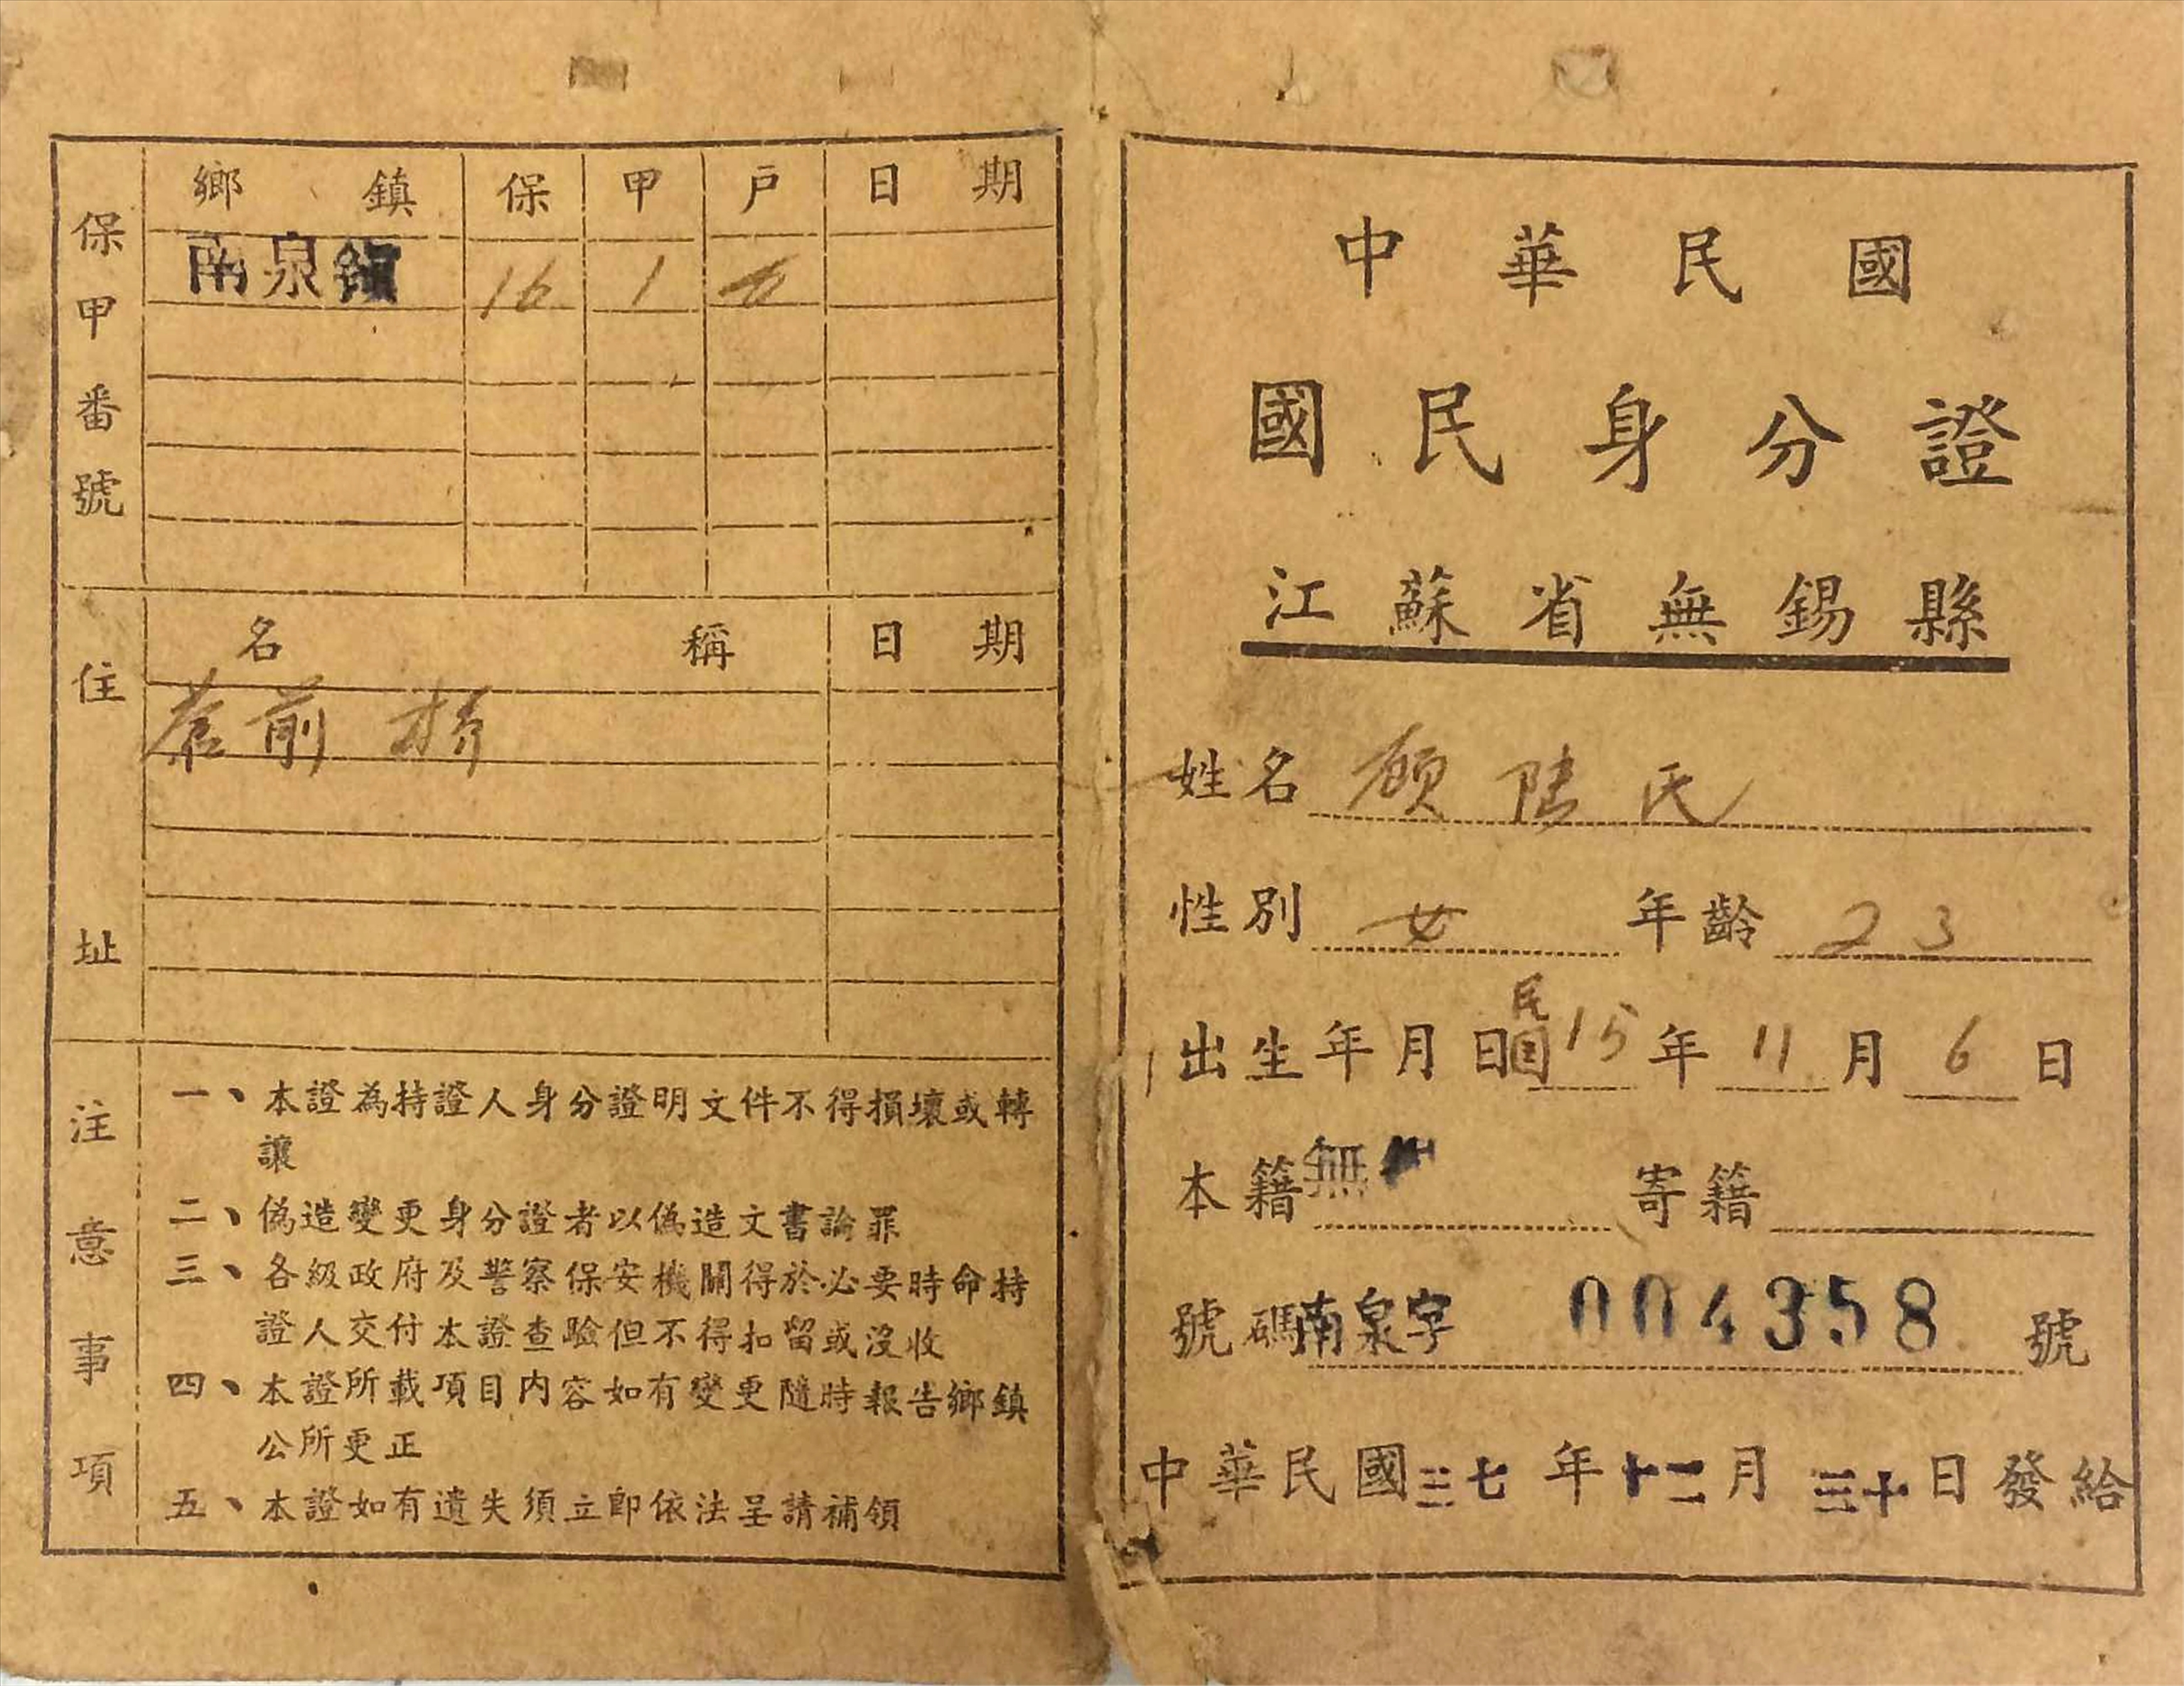 中華民國
國民身分證
江蘇省無錫縣
姓名 顧陸氏
性別 女 年齡 23
出生年月日民国15年11月6日
本籍無 寄籍
號碼南泉字 004358 號
中華民國三七年十二月三十日發給
保甲番號
鄉鎮 保 甲 戶 日期
南泉鎮 16 1
住址
名稱 日期
前
注意事項
一、本證為持證人身分證明文件不得損壞或轉
讓
二、偽造變更身分證者以偽造文書論罪
三、各級政府及警察保安機關得於必要時命持
證人交付本證查驗但不得扣留或沒收
四、本證所載項目內容如有變更隨時報告鄉鎮
公所更正
五、本證如有遺失須立即依法呈請補領